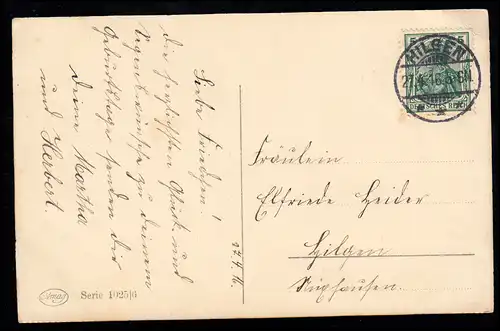 Liebe Friedchen!
die herzlichsten Glück und
Segenswünsche zu deinem
Geburtstage senden dir
deine Martha
und Herbert.
27.4.16.
Fräulein
Elfriede Heider
Hilgen
HILGEN
27.4.16.
DEUTSCHES REICH
5 5
Amag
Serie 1025/6